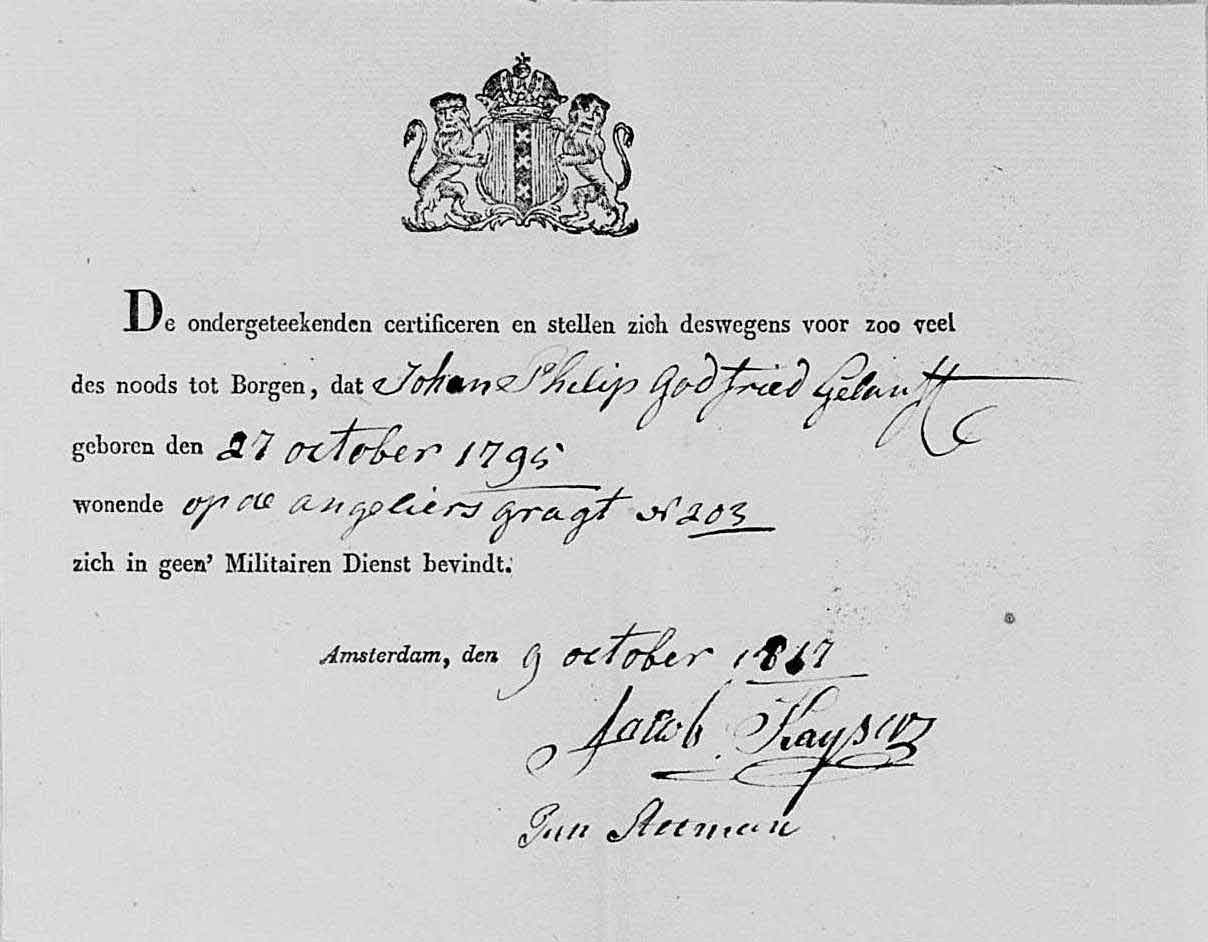 De ondergeteekenden certificeren en stellen zich deswegens voor zoo veel
des noods tot Borgen, dat Johan Philip Godfried Gelauff
geboren den 27 october 1795
wonende op de angeliers gragt N 203
zich in geen' Militairen Dienst bevindt.
Amsterdam, den 9 october 1817
Jacob Kayser
Jan Steeman